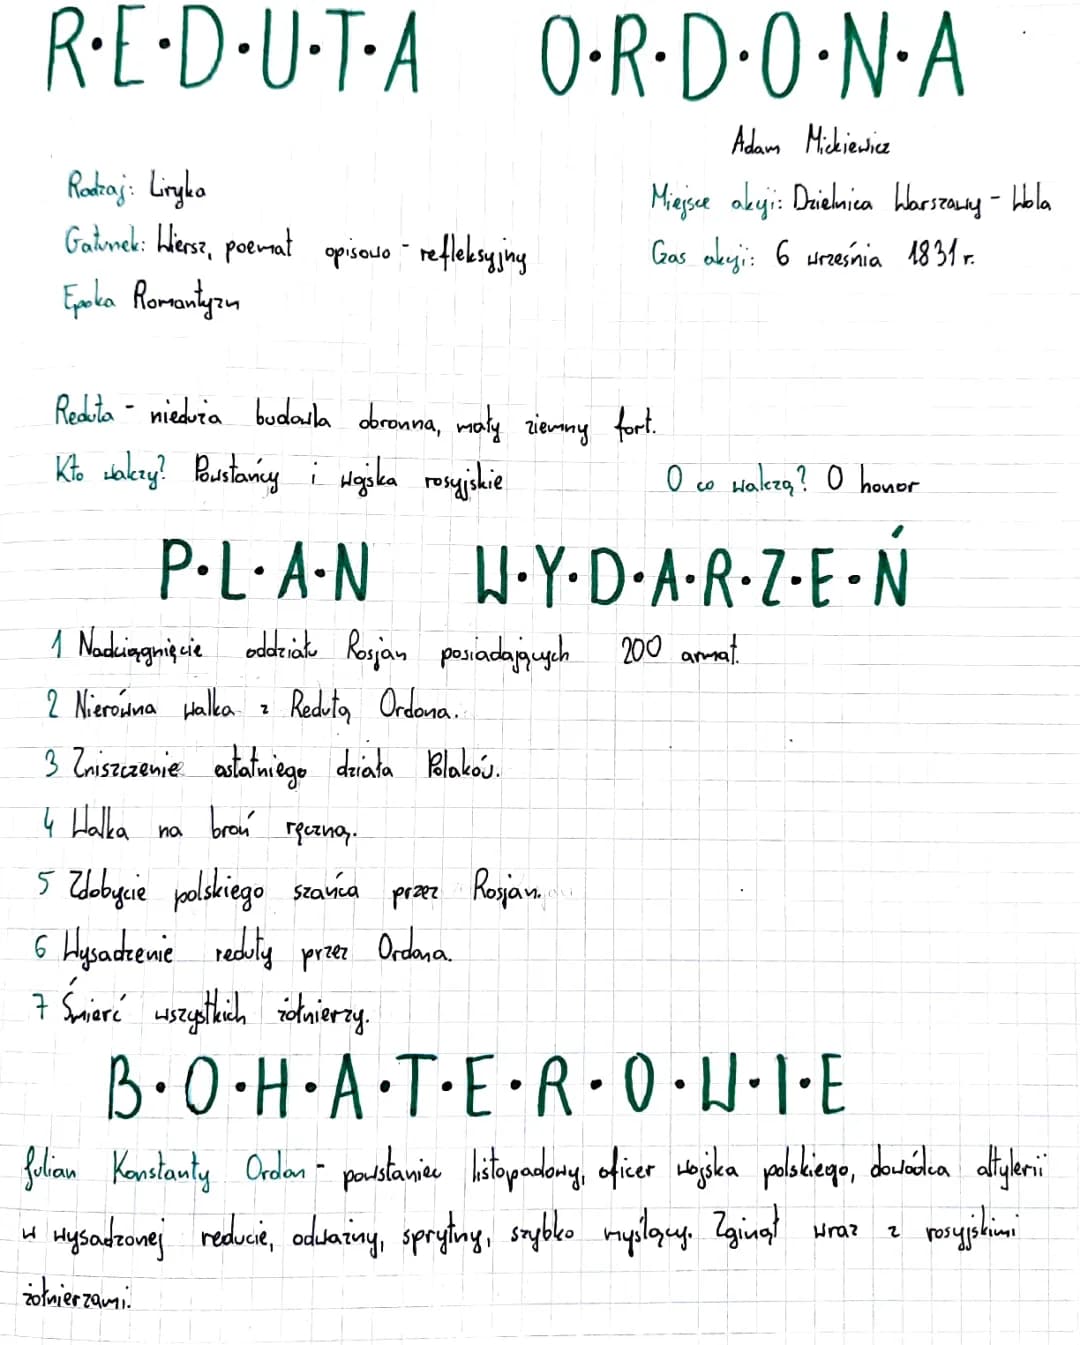 R·E·D·U·T·A O·R·D·O·N·A
Adam Mickiewicz
Rodzaj: Liryka
Miejsce akcji: Dzielnica Warszawy - Wola
Gatunek: Wiersz, poemat opisowo - refleksyjny
Czas akcji: 6 września 1831 r.
Epoka Romantyzm
Reduta - nieduża budowla obronna, mały ziemny fort.
Kto walczy? Powstańcy i wojska rosyjskie O co walczą? O honor
P·L·A·N W·Y·D·A·R·Z·E·Ń
1 Nadciągnięcie oddziału Rosjan posiadających 200 armat.
2 Nierówna walka z Redutą Ordona.
3 Zniszczenie ostatniego działa Polaków.
4 Walka na broń ręczną.
5 Zdobycie polskiego szańca przez Rosjan.
6 Wysadzenie reduty przez Ordona.
7 Śmierć wszystkich żołnierzy.
B·O·H·A·T·E·R·O·W·I·E
Julian Konstanty Ordon - powstaniec listopadowy, oficer wojska polskiego, dowódca altylerii
w wysadzonej reducie, odważny, sprytny, szybko myślący. Zginął wraz z rosyjskimi
żołnierzami.